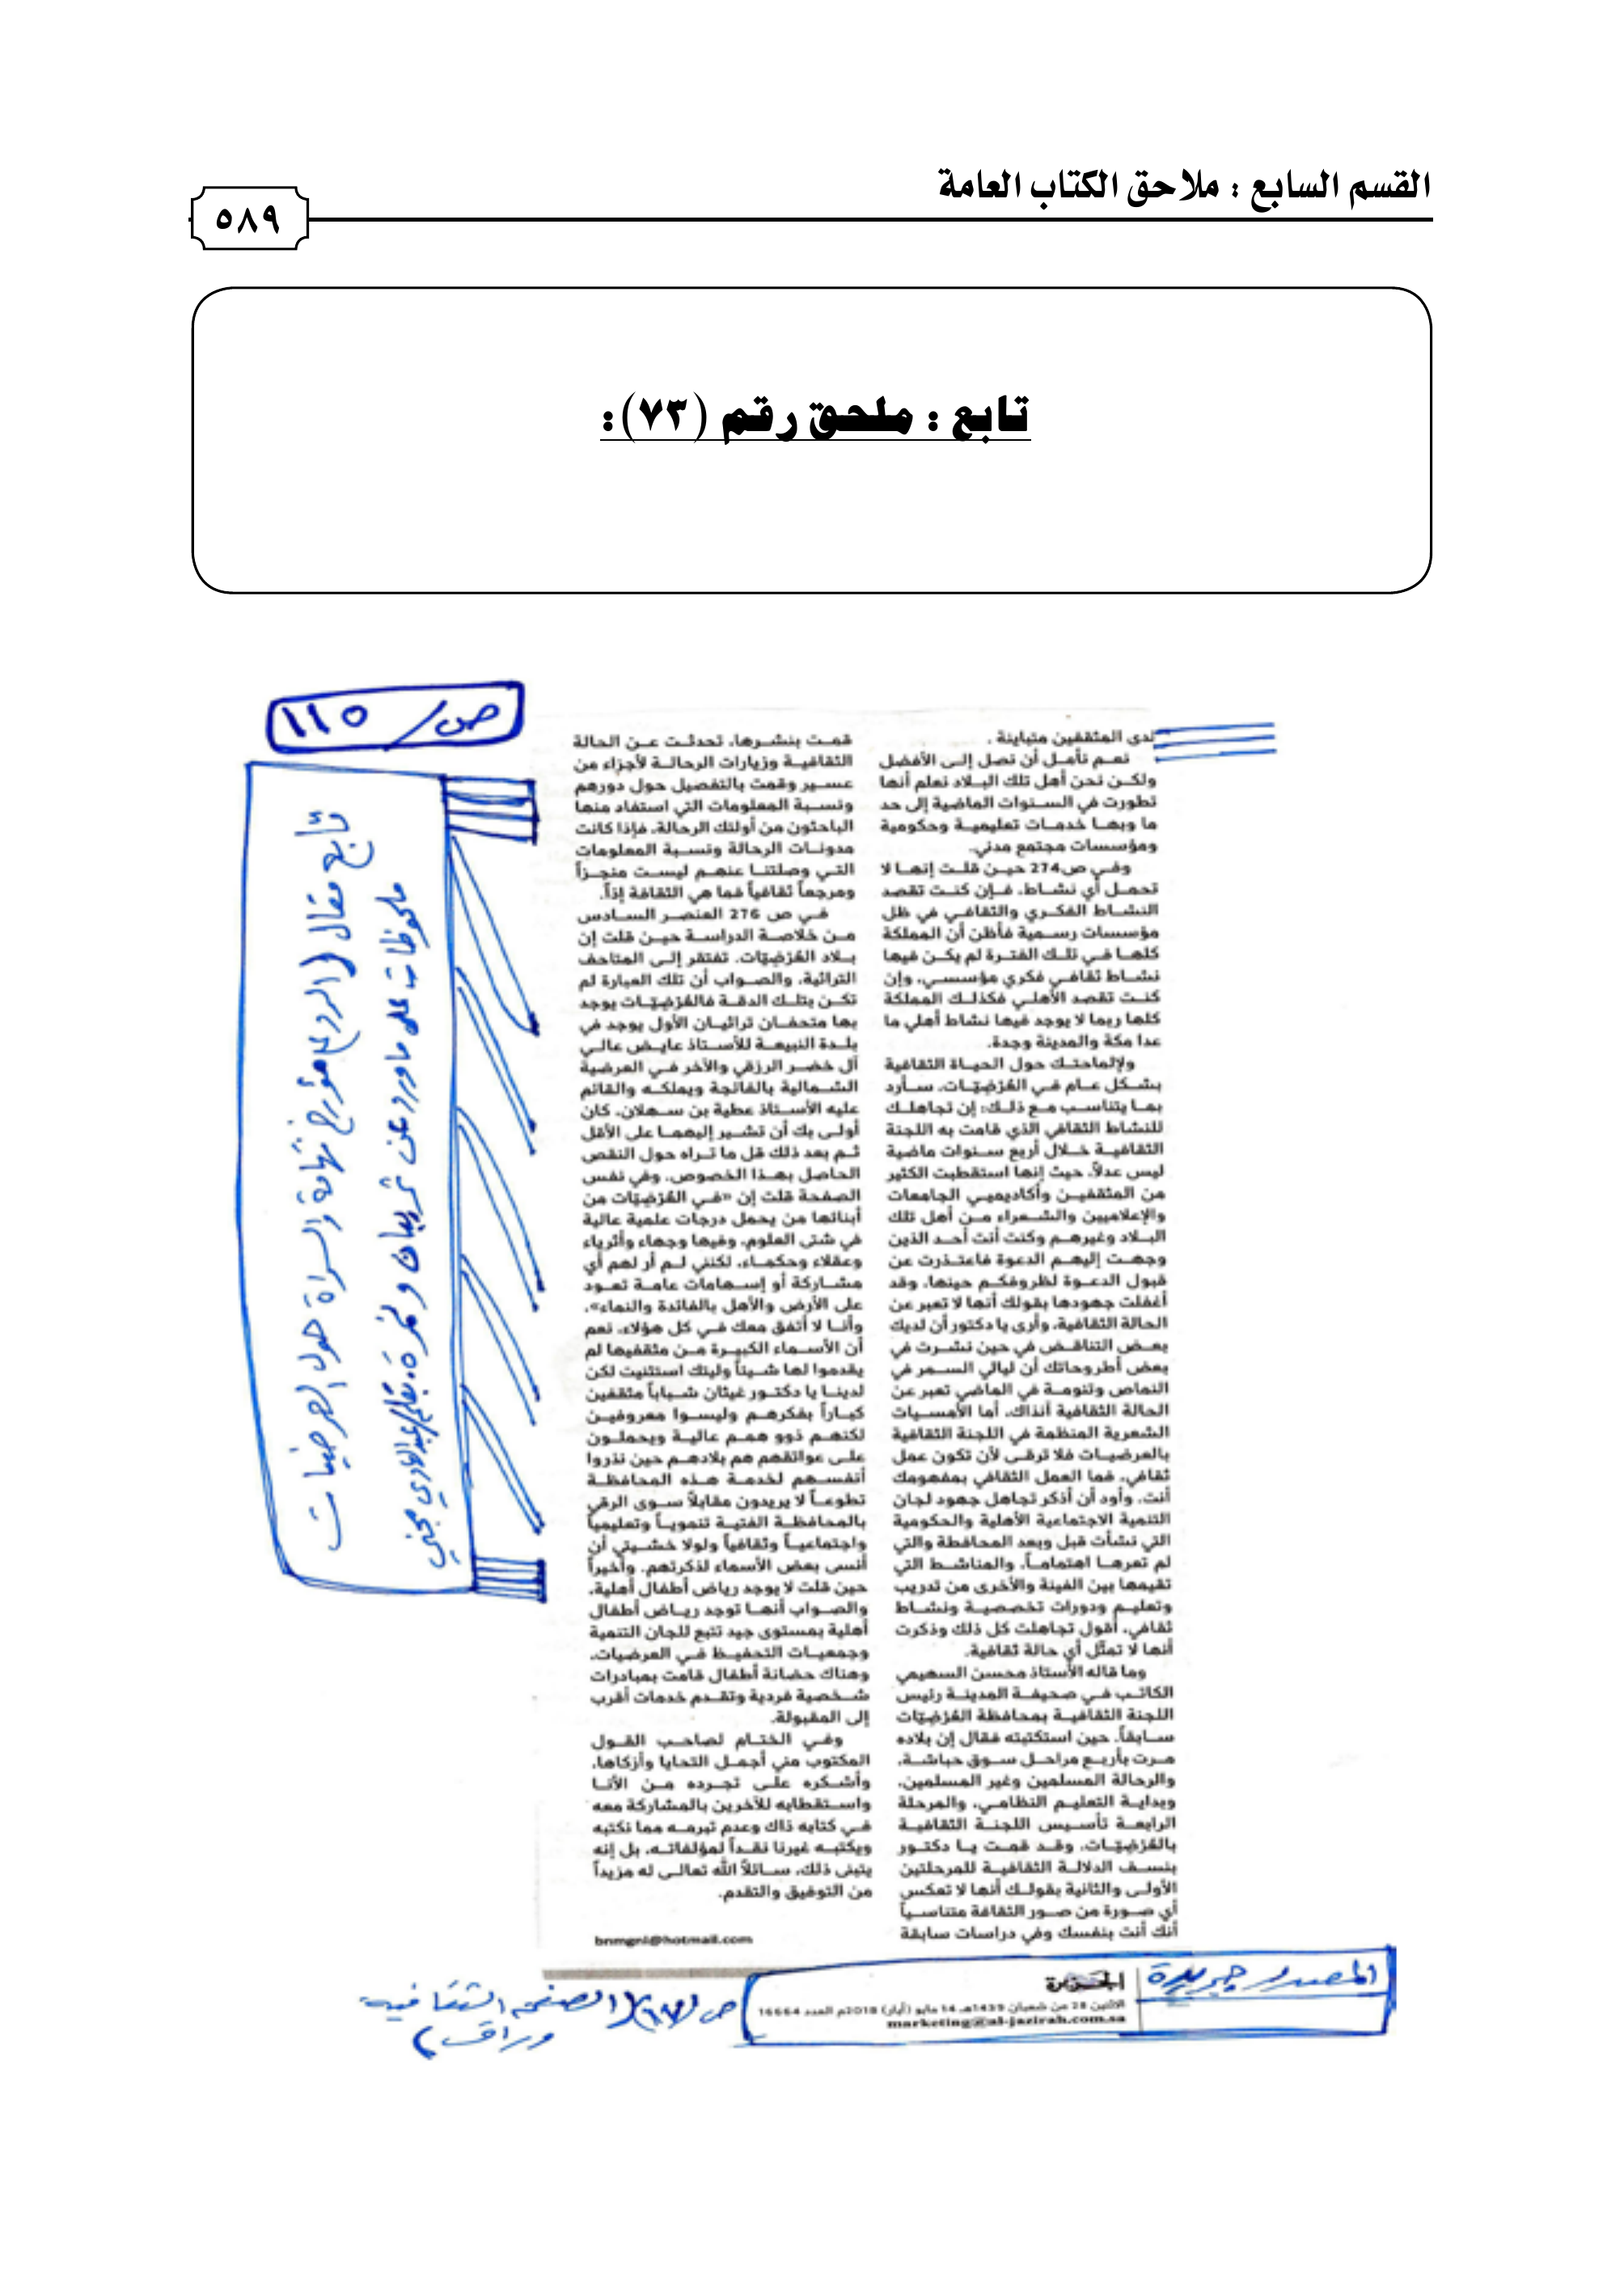 القسم السابع : ملاحق الكتاب العامة
٥٨٩
تابع : ملحق رقم (٧٣):
ص/ ١١٥
تابع مقال (الرد على مؤرخ تهامة والسراة حول العرضيات
ملحوظات على ما ورد عن ثريبان ونمرة، بقلم عبدالهادي مجني
لدى المثقفين متباينة .
نعم نأمل أن تصل إلى الأفضل
ولكن نحن أهل تلك البلاد نعلم أنها
تطورت في السنوات الماضية إلى حد
ما وبها خدمات تعليمية وحكومية
ومؤسسات مجتمع مدني.
وفي ص274 حين قلت إنها لا
تحمل أي نشاط، فإن كنت تقصد
النشاط الفكري والثقافي في ظل
مؤسسات رسمية فأظن أن المملكة
كلها في تلك الفترة لم يكن فيها
نشاط ثقافي فكري مؤسسي، وإن
كنت تقصد الأهلي فكذلك المملكة
كلها ربما لا يوجد فيها نشاط أهلي ما
عدا مكة والمدينة وجدة.
ولإلماحتك حول الحياة الثقافية
بشكل عام في العُرْضِيّات، سأرد
بما يتناسب مع ذلك: إن تجاهلك
للنشاط الثقافي الذي قامت به اللجنة
الثقافية خلال أربع سنوات ماضية
ليس عدلاً، حيث إنها استقطبت الكثير
من المثقفين وأكاديميي الجامعات
والإعلاميين والشعراء من أهل تلك
البلاد وغيرهم وكنت أنت أحد الذين
وجهت إليهم الدعوة فاعتذرت عن
قبول الدعوة لظروفكم حينها، وقد
أغفلت جهودها بقولك أنها لا تعبر عن
الحالة الثقافية، وأرى يا دكتور أن لديك
بعض التناقض في حين نشرت في
بعض أطروحاتك أن ليالي السمر في
النماص وتنومة في الماضي تعبر عن
الحالة الثقافية آنذاك، أما الأمسيات
الشعرية المنظمة في اللجنة الثقافية
بالعرضيات فلا ترقى لأن تكون عمل
ثقافي، فما العمل الثقافي بمفهومك
أنت، وأود أن أذكر تجاهل جهود لجان
التنمية الاجتماعية الأهلية والحكومية
التي نشأت قبل وبعد المحافظة والتي
لم تعرها اهتماماً، والمناشط التي
تقيمها بين الفينة والأخرى من تدريب
وتعليم ودورات تخصصية ونشاط
ثقافي، أقول تجاهلت كل ذلك وذكرت
أنها لا تمثّل أي حالة ثقافية.
وما قاله الأستاذ محسن السهيمي
الكاتب في صحيفة المدينة رئيس
اللجنة الثقافية بمحافظة العُرْضِيّات
سابقاً، حين استكتبته فقال إن بلاده
مرت بأربع مراحل سوق حباشة،
والرحالة المسلمين وغير المسلمين،
وبداية التعليم النظامي، والمرحلة
الرابعة تأسيس اللجنة الثقافية
بالعُرْضِيّات، وقد قمت يا دكتور
بنسف الدلالة الثقافية للمرحلتين
الأولى والثانية بقولك أنها لا تعكس
أي صورة من صور الثقافة متناسياً
أنك أنت بنفسك وفي دراسات سابقة
قمت بنشرها، تحدثت عن الحالة
الثقافية وزيارات الرحالة لأجزاء من
عسير وقمت بالتفصيل حول دورهم
ونسبة المعلومات التي استفاد منها
الباحثون من أولئك الرحالة، فإذا كانت
مدونات الرحالة ونسبة المعلومات
التي وصلتنا عنهم ليست منجزاً
ومرجعاً ثقافياً فما هي الثقافة إذاً.
في ص 276 العنصر السادس
من خلاصة الدراسة حين قلت إن
بلاد العُرْضِيّات، تفتقر إلى المتاحف
التراثية، والصواب أن تلك العبارة لم
تكن بتلك الدقة فالعُرْضِيّات يوجد
بها متحفان تراثيان الأول يوجد في
بلدة النبيعة للأستاذ عايض عالي
آل خضر الرزقي والآخر في العرضية
الشمالية بالفائجة ويملكه والقائم
عليه الأستاذ عطية بن سهلان، كان
أولى بك أن تشير إليهما على الأقل
ثم بعد ذلك قل ما تراه حول النقص
الحاصل بهذا الخصوص، وفي نفس
الصفحة قلت إن «في العُرْضِيّات من
أبنائها من يحمل درجات علمية عالية
في شتى العلوم، وفيها وجهاء وأثرياء
وعقلاء وحكماء، لكنني لم أر لهم أي
مشاركة أو إسهامات عامة تعود
على الأرض والأهل بالفائدة والنماء»،
وأنا لا أتفق معك في كل هؤلاء، نعم
أن الأسماء الكبيرة من مثقفيها لم
يقدموا لها شيئاً وليتك استثنيت لكن
لدينا يا دكتور غيثان شباباً مثقفين
كباراً بفكرهم وليسوا معروفين
لكنهم ذوو همم عالية ويحملون
على عواتقهم هم بلادهم حين نذروا
أنفسهم لخدمة هذه المحافظة
تطوعاً لا يريدون مقابلاً سوى الرقي
بالمحافظة الفتية تنموياً وتعليمياً
واجتماعياً وثقافياً ولولا خشيتي أن
أنسى بعض الأسماء لذكرتهم. وأخيراً
حين قلت لا يوجد رياض أطفال أهلية،
والصواب أنها توجد رياض أطفال
أهلية بمستوى جيد تتبع للجان التنمية
وجمعيات التحفيظ في العرضيات،
وهناك حضانة أطفال قامت بمبادرات
شخصية فردية وتقدم خدمات أقرب
إلى المقبولة.
وفي الختام لصاحب القول
المكتوب مني أجمل التحايا وأزكاها،
وأشكره على تجرده من الأنا
واستقطابه للآخرين بالمشاركة معه
في كتابه ذاك وعدم تبرمه مما نكتبه
ويكتبه غيرنا نقداً لمؤلفاته، بل إنه
يتبنى ذلك، سائلاً الله تعالى له مزيداً
من التوفيق والتقدم.
bnmgni@hotmail.com
المصدر جريدة
الجزيرة
الاثنين 28 من شعبان 1439هـ 14 مايو (أيار) 2018م العدد 16664
marketing@al-jazirah.com.sa
الصفحة الثقافية
وراق)